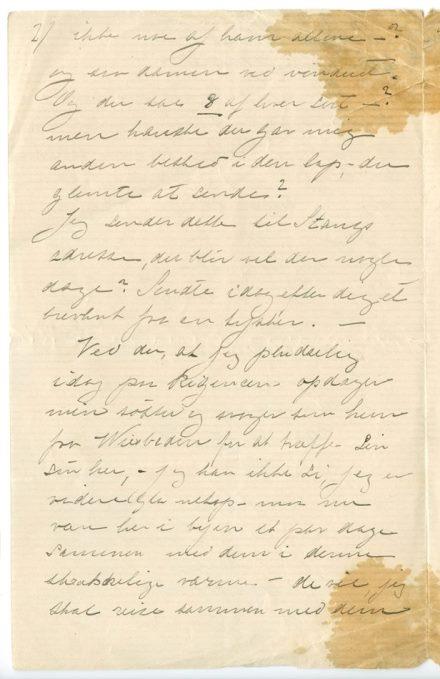 2/ ikke noe af ham allene – ?
og saa damen ved
Og du saa 8 af hver – ?
men kanske du gav mig
anden besked i den lap, du
glemte at sende?
Jeg sender dette til Stangs
adresse, du blir vel der nogle
dage? Sendte idag efter dig et
brevkort fra en –
Ved du, at jeg pludselig
idag paa Regencen opdager
min søster og svoger som kom
fra Wiesbaden for at træffe sin
søn her, – jeg kan ikke si jeg er
netop – maa nu
være her i byen et par dage
sammen med dem i denne
skrækkelige varme – de vil, jeg
skal reise sammen med dem